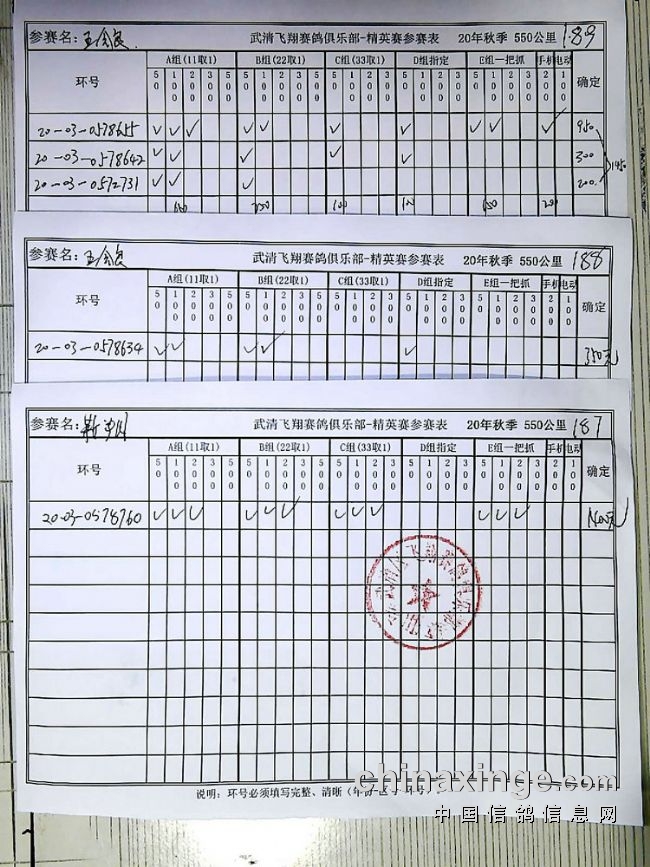 参赛名: 武清飞翔赛鸽俱乐部-精英赛参赛表 20年秋季 550公里 189
环号 A组(11取1) B组(22取1) C组(33取1) D组指定 E组一把抓 手机 电动 确定
50 100 200 300 500 50 100 200 300 500 50 100 200 300 500 50 100 200 300 50 100 200 300 200 100
20-03-0578655 ✓ ✓ ✓ ✓ ✓ ✓ ✓ ✓ ✓ ✓ 950
20-03-0578642 ✓ ✓ ✓ ✓ ✓ 300 1450
20-03-0572731 ✓ ✓ ✓ 200.
100 100 200
参赛名: 武清飞翔赛鸽俱乐部-精英赛参赛表 20年秋季 550公里 188
环号 A组(11取1) B组(22取1) C组(33取1) D组指定 E组一把抓 手机 电动 确定
50 100 200 300 500 50 100 200 300 500 50 100 200 300 500 50 100 200 300 50 100 200 300 200 100
20-03-0578634 ✓ ✓ ✓ ✓ ✓ 350元
参赛名: 武清飞翔赛鸽俱乐部-精英赛参赛表 20年秋季 550公里 187
环号 A组(11取1) B组(22取1) C组(33取1) D组指定 E组一把抓 手机 电动 确定
50 100 200 300 500 50 100 200 300 500 50 100 200 300 500 50 100 200 300 50 100 200 300 200 100
20-03-0578760 ✓ ✓ ✓ ✓ ✓ ✓ ✓ ✓ ✓ ✓ ✓ ✓
说明: 环号必须填写完整、清晰
chinaxinge.com
中国信鸽信息网